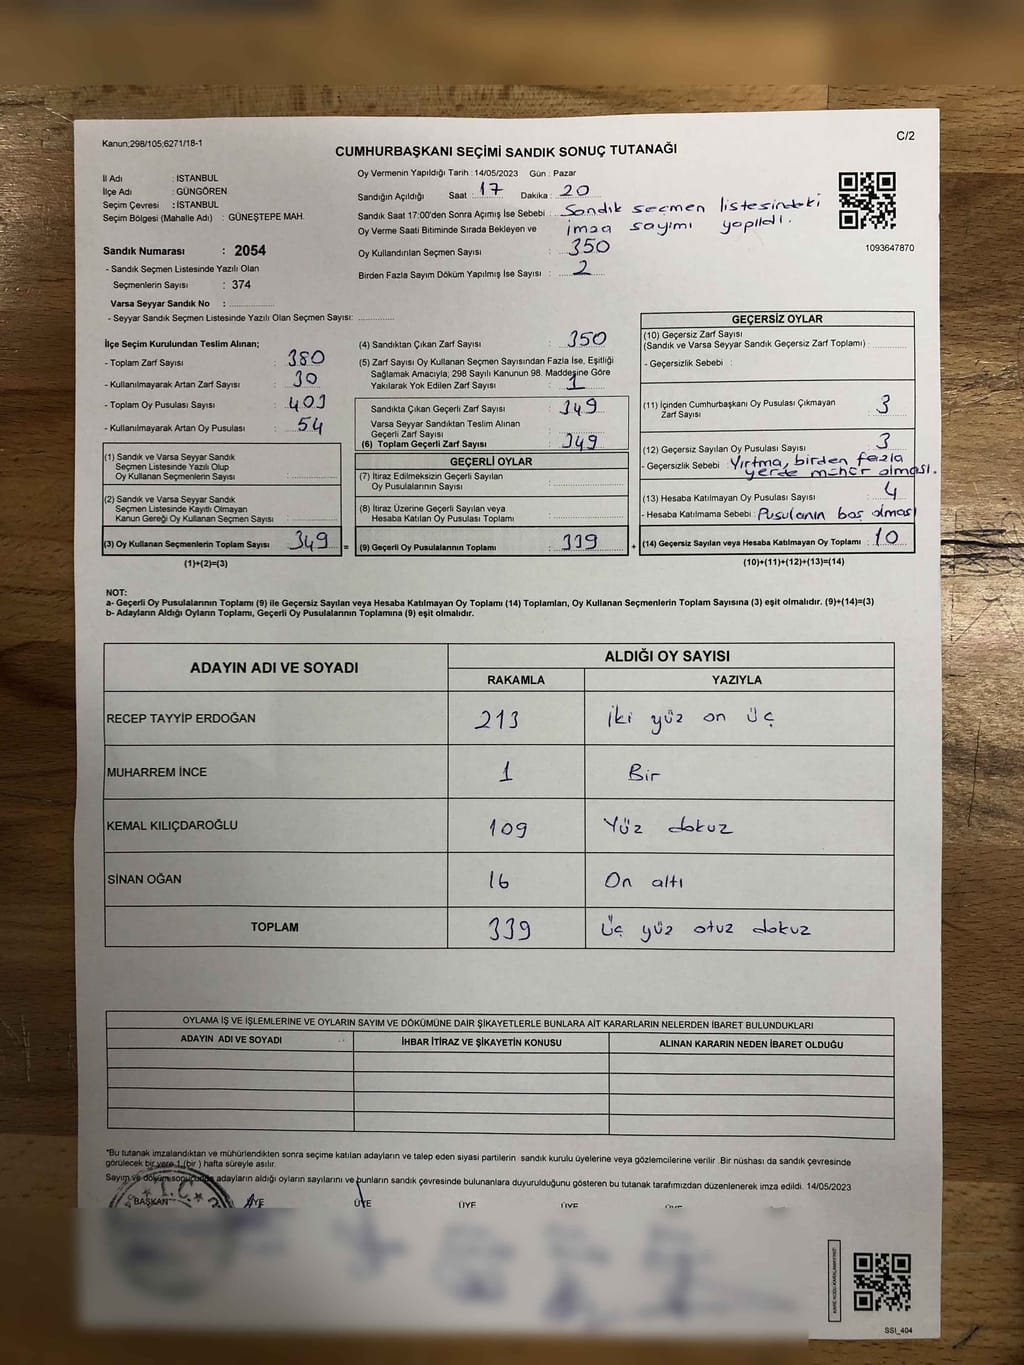 Kanun;298/105;6271/18-1
C/2
CUMHURBAŞKANI SEÇİMİ SANDIK SONUÇ TUTANAĞI
İl Adı : İSTANBUL
İlçe Adı : GÜNGÖREN
Seçim Çevresi : İSTANBUL
Seçim Bölgesi (Mahalle Adı) : GÜNEŞTEPE MAH.
Sandık Numarası : 2054
- Sandık Seçmen Listesinde Yazılı Olan
Seçmenlerin Sayısı : 374
Varsa Seyyar Sandık No : ..............
- Seyyar Sandık Seçmen Listesinde Yazılı Olan Seçmen Sayısı: ............
Oy Vermenin Yapıldığı Tarih : 14/05/2023 Gün : Pazar
Sandığın Açıldığı Saat : 17 Dakika : 20
Sandık Saat 17:00'den Sonra Açımış İse Sebebi : Sandık seçmen listesindeki
Oy Verme Saati Bitiminde Sırada Bekleyen ve imza sayımı yapıldı.
Oy Kullandırılan Seçmen Sayısı : 350
Birden Fazla Sayım Döküm Yapılmış İse Sayısı : 2
1093647870
İlçe Seçim Kurulundan Teslim Alınan;
- Toplam Zarf Sayısı : 380
- Kullanılmayarak Artan Zarf Sayısı : 30
- Toplam Oy Pusulası Sayısı : 403
- Kullanılmayarak Artan Oy Pusulası : 54
(1) Sandık ve Varsa Seyyar Sandık
Seçmen Listesinde Yazılı Olup
Oy Kullanan Seçmenlerin Sayısı : ..............
(2) Sandık ve Varsa Seyyar Sandık
Seçmen Listesinde Kayıtlı Olmayan
Kanun Gereği Oy Kullanan Seçmen Sayısı : ..............
(3) Oy Kullanan Seçmenlerin Toplam Sayısı : 349 =
(1)+(2)=(3)
(4) Sandıktan Çıkan Zarf Sayısı : 350
(5) Zarf Sayısı Oy Kullanan Seçmen Sayısından Fazla İse, Eşitliği
Sağlamak Amacıyla; 298 Sayılı Kanunun 98. Maddesine Göre
Yakılarak Yok Edilen Zarf Sayısı : 1
Sandıkta Çıkan Geçerli Zarf Sayısı : 349
Varsa Seyyar Sandıktan Teslim Alınan
Geçerli Zarf Sayısı :
(6) Toplam Geçerli Zarf Sayısı : 349
GEÇERLİ OYLAR
(7) İtiraz Edilmeksizin Geçerli Sayılan
Oy Pusulalarının Sayısı : ..............
(8) İtiraz Üzerine Geçerli Sayılan veya
Hesaba Katılan Oy Pusulası Toplamı : ..............
(9) Geçerli Oy Pusulalarının Toplamı : 339 +
GEÇERSİZ OYLAR
(10) Geçersiz Zarf Sayısı
(Sandık ve Varsa Seyyar Sandık Geçersiz Zarf Toplamı) : ............
- Geçersizlik Sebebi :
(11) İçinden Cumhurbaşkanı Oy Pusulası Çıkmayan
Zarf Sayısı : 3
(12) Geçersiz Sayılan Oy Pusulası Sayısı : 3
- Geçersizlik Sebebi : Yırtma, birden fazla
yerde mühür olması.
(13) Hesaba Katılmayan Oy Pusulası Sayısı : 4
- Hesaba Katılmama Sebebi : Pusulanın boş olması
(14) Geçersiz Sayılan veya Hesaba Katılmayan Oy Toplamı : 10
(10)+(11)+(12)+(13)=(14)
NOT:
a- Geçerli Oy Pusulalarının Toplamı (9) ile Geçersiz Sayılan veya Hesaba Katılmayan Oy Toplamı (14) Toplamları, Oy Kullanan Seçmenlerin Toplam Sayısına (3) eşit olmalıdır. (9)+(14)=(3)
b- Adayların Aldığı Oyların Toplamı, Geçerli Oy Pusulalarının Toplamına (9) eşit olmalıdır.
ADAYIN ADI VE SOYADI ALDIĞI OY SAYISI
RAKAMLA YAZIYLA
RECEP TAYYİP ERDOĞAN 213 İki yüz on üç
MUHARREM İNCE 1 Bir
KEMAL KILIÇDAROĞLU 109 Yüz dokuz
SİNAN OĞAN 16 On altı
TOPLAM 339 Üç yüz otuz dokuz
OYLAMA İŞ VE İŞLEMLERİNE VE OYLARIN SAYIM VE DÖKÜMÜNE DAİR ŞİKAYETLERLE BUNLARA AİT KARARLARIN NELERDEN İBARET BULUNDUKLARI
ADAYIN ADI VE SOYADI İHBAR İTİRAZ VE ŞİKAYETİN KONUSU ALINAN KARARIN NEDEN İBARET OLDUĞU
*Bu tutanak imzalandıktan ve mühürlendikten sonra seçime katılan adayların ve talep eden siyasi partilerin sandık kurulu üyelerine veya gözlemcilerine verilir .Bir nüshası da sandık çevresinde
görülecek bir yere 1 (bir ) hafta süreyle asılır.
Sayım ve döküm sonucunda adayların aldığı oyların sayılarını ve bunların sandık çevresinde bulunanlara duyurulduğunu gösteren bu tutanak tarafımızdan düzenlenerek imza edildi. 14/05/2023
T.C.
BAŞKAN ÜYE ÜYE ÜYE ÜYE ÜYE
SSI_404